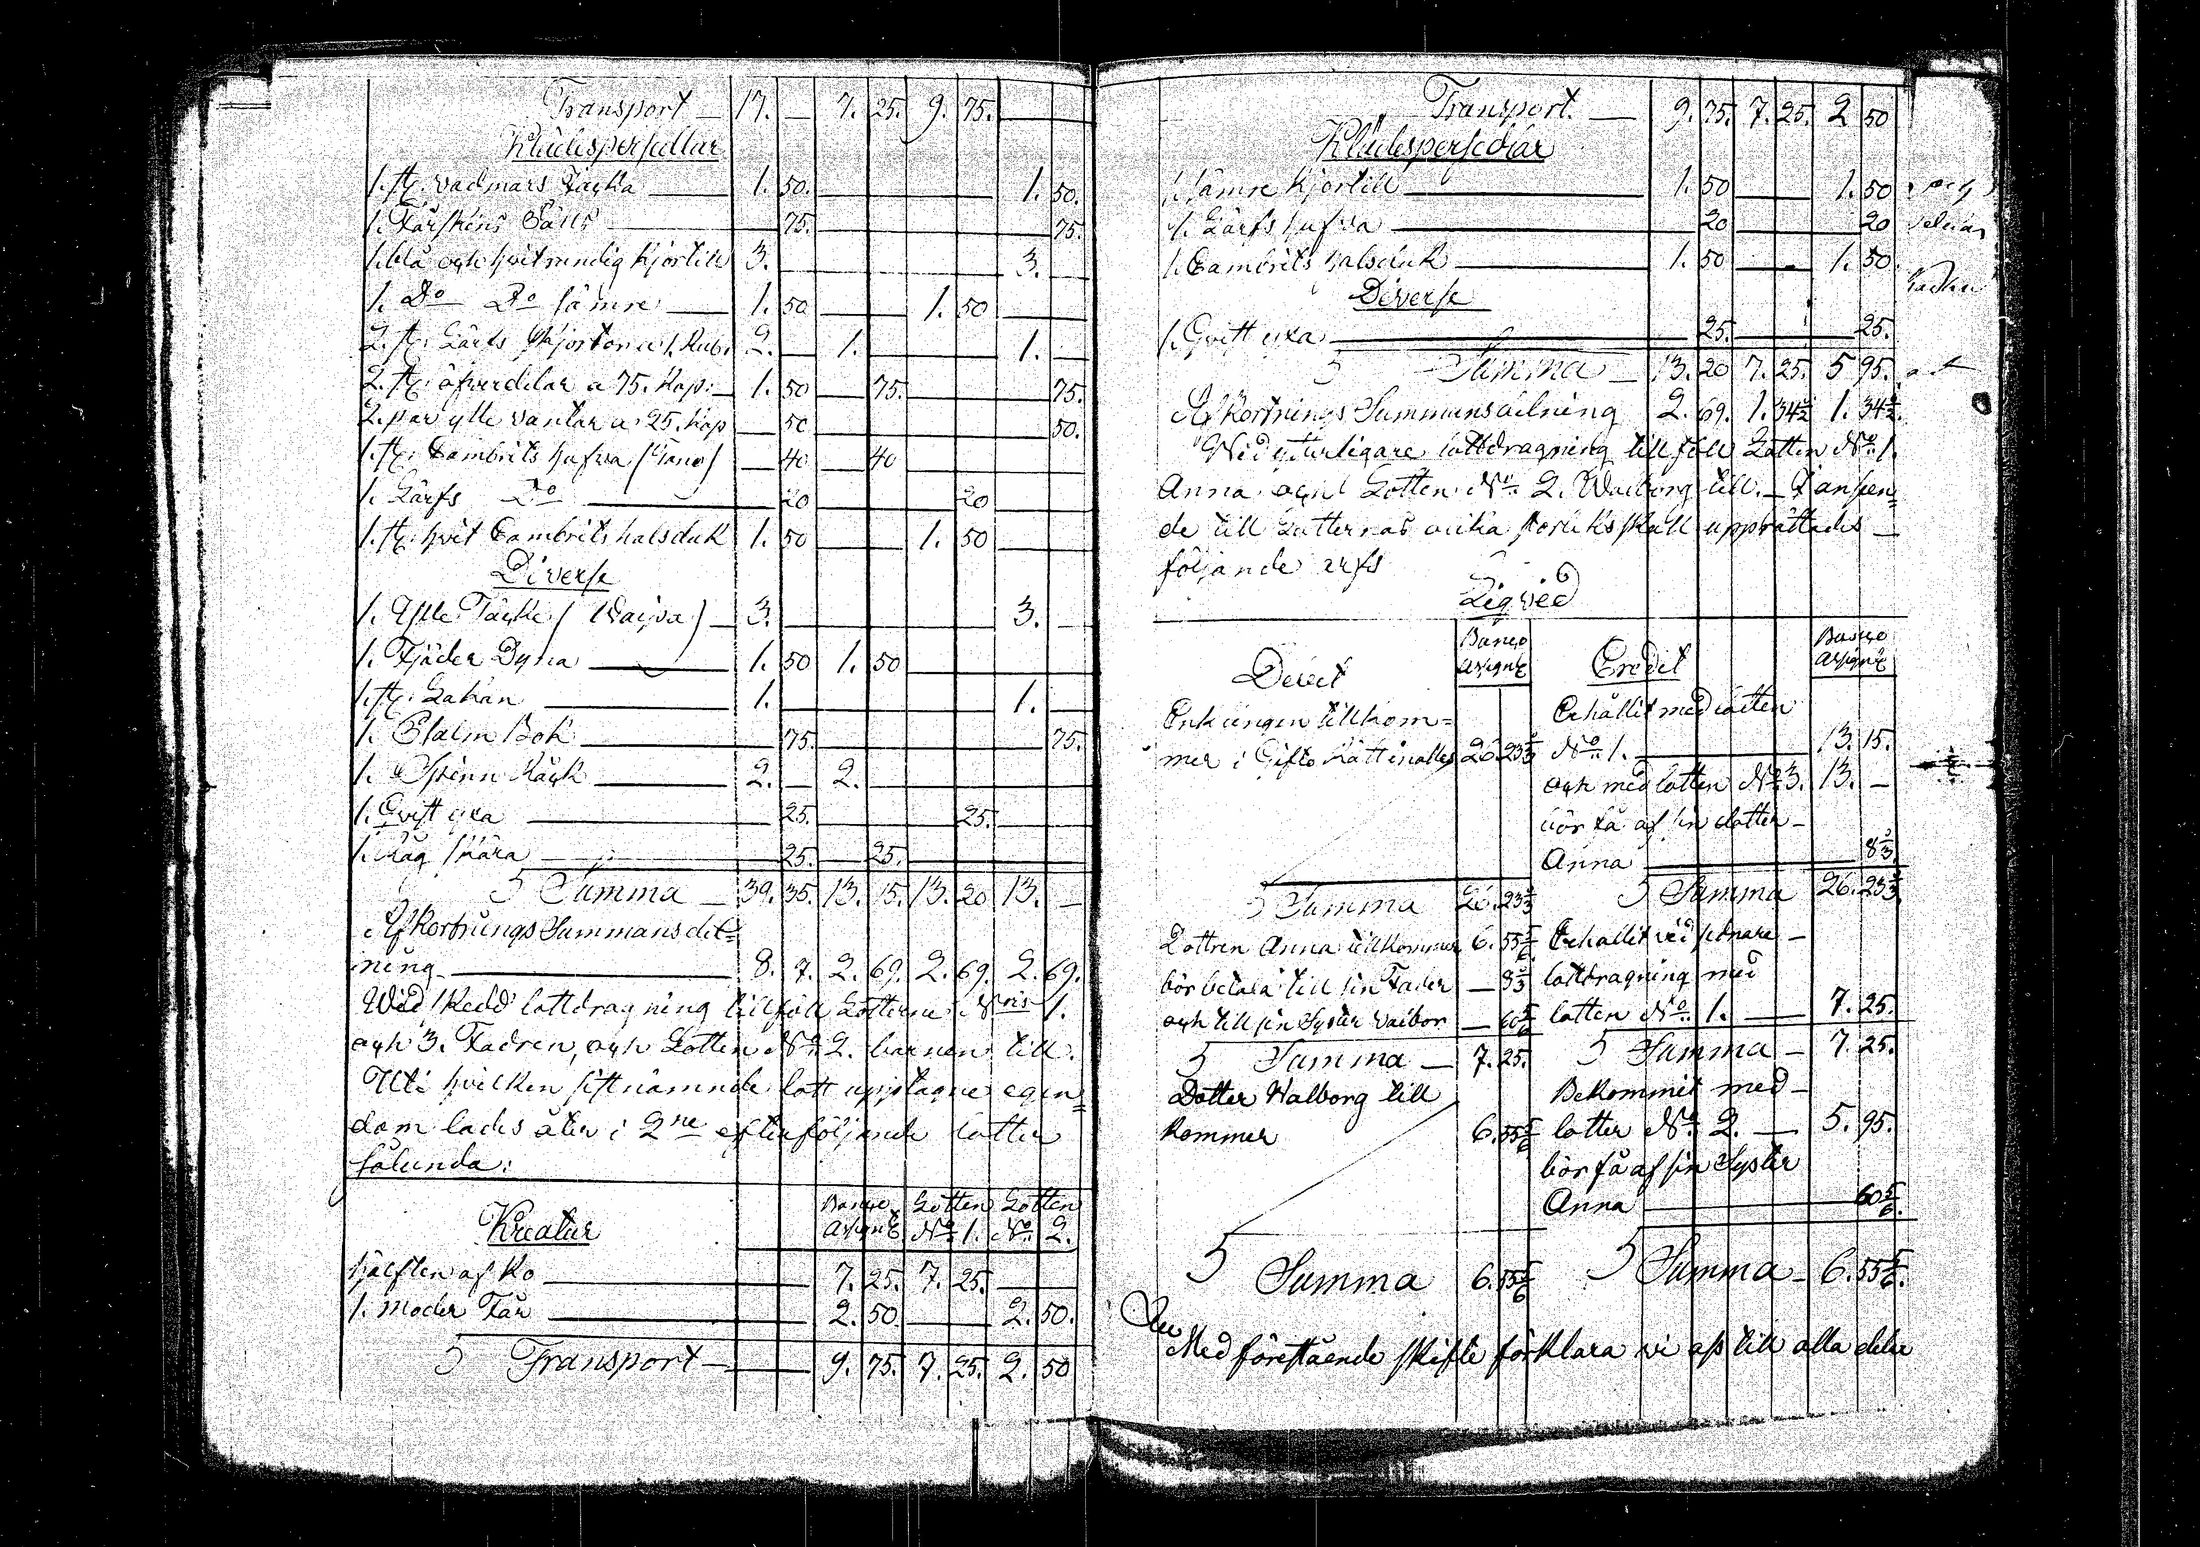 Transport — 17. — 7. 25. 9. 75. —
Klädespersedlar
1. st. vadmars Jacka — 1. 50. — 1. 50.
1. Fårskins Fälls — 75. — 75.
1. blå och hvitrundig kjortell 3. — 3. —
1. Do Do sämre — 1. 50 — 1. 50 —
2. st. Lärfs skjortor a 1. Rub. 2. — 1. — 1. —
2. st. öfverdelar a 75. Kop: — 1. 50 — 75. — 75.
2. par ylle vantar a 25. Kop — 50 — 50.
1. st. Cambrits hufva — 40 — 40 —
1. Lärfs Do — 20 — 20 —
1. st. hvit Cambrits halsduk 1. 50 — 1. 50 —
Diverse
1. Ylle Täcke — 3. — 3. —
1. Fjäder Dyna — 1. 50 1. 50 —
1. st. Lakan — 1. — 1. —
1. Psalm Bok — 75. — 75.
1. Spinn Råck — 2. — 2. —
1. Qvist yxa — 25. — 25. —
1. Råg skära — 25. — 25. —
S Summa — 39. 35. 13. 15. 13. 20 13. —
Afkortnings Summans del=
ning — 8. 7. 2. 69. 2. 69. 2. 69.
Wid skedd lottdragning tillföll Lotterne Nris 1.
och 3. Fadren, och Lotten No 2. barnen till.
Uti hvilken sistnämnde lott upptagne egen=
dom lades åter i 2ne efterföljande lotter
sålunda:
Kreatur
Banco Assignt Lotten No 1. Lotten No 2.
hälften af Ko — 7. 25. 7. 25. —
1. moder Får — 2. 50. — 2. 50.
S Transport — 9. 75. 7. 25. 2. 50
Transport. — 9. 75. 7. 25. 2 50
Klädespersedlar
1. sämre kjortell — 1. 50 — 1. 50
1. Lärfs hufva — 20 — 20
1. Cambrits halsduk — 1. 50 — 1. 50
Diverse
1. Qvist yxa — 25. — 25.
S Summa — 13. 20 7. 25. 5 95.
Afkortnings Summans delning 2. 69. 1. 34½ 1. 34½.
Wid ytterligare lottdragning tillföll Lotten No 1.
Anna och Lotten No 2. Walborg till. — I anseen=
de till Lotternas olika storlek skall upprättades —
följande arfs
Liqvid
Debet Banco Assignt Credit Banco Assignt
Enklingen tillkom=
mer i Giftorätt inalles 26. 23⅓
Erhållit med lotten
No 1. — 13. 15.
och med lotten No 3. 13. —
bör få af sin dotter —
Anna — 8⅓
S Summa 26. 23⅓ S Summa 26. 23⅓
Dottren Anna tillkommer 6. 55⅚
bör betala till sin Fader — 8⅓
och till sin Syster Valbor — 60⅚
Erhållit vid senare —
lottdragning med
lotten No 1. — 7. 25.
S Summa — 7. 25. S Summa — 7. 25.
Dotter Walborg till
kommer 6. 55⅚
Bekommit med —
lotter No 2. — 5. 95.
bör få af sin Syster
Anna — 60⅚.
S Summa 6. 55⅚ S Summa — 6. 55⅚.
Med förestående skifte förklara vi oss till alla delar